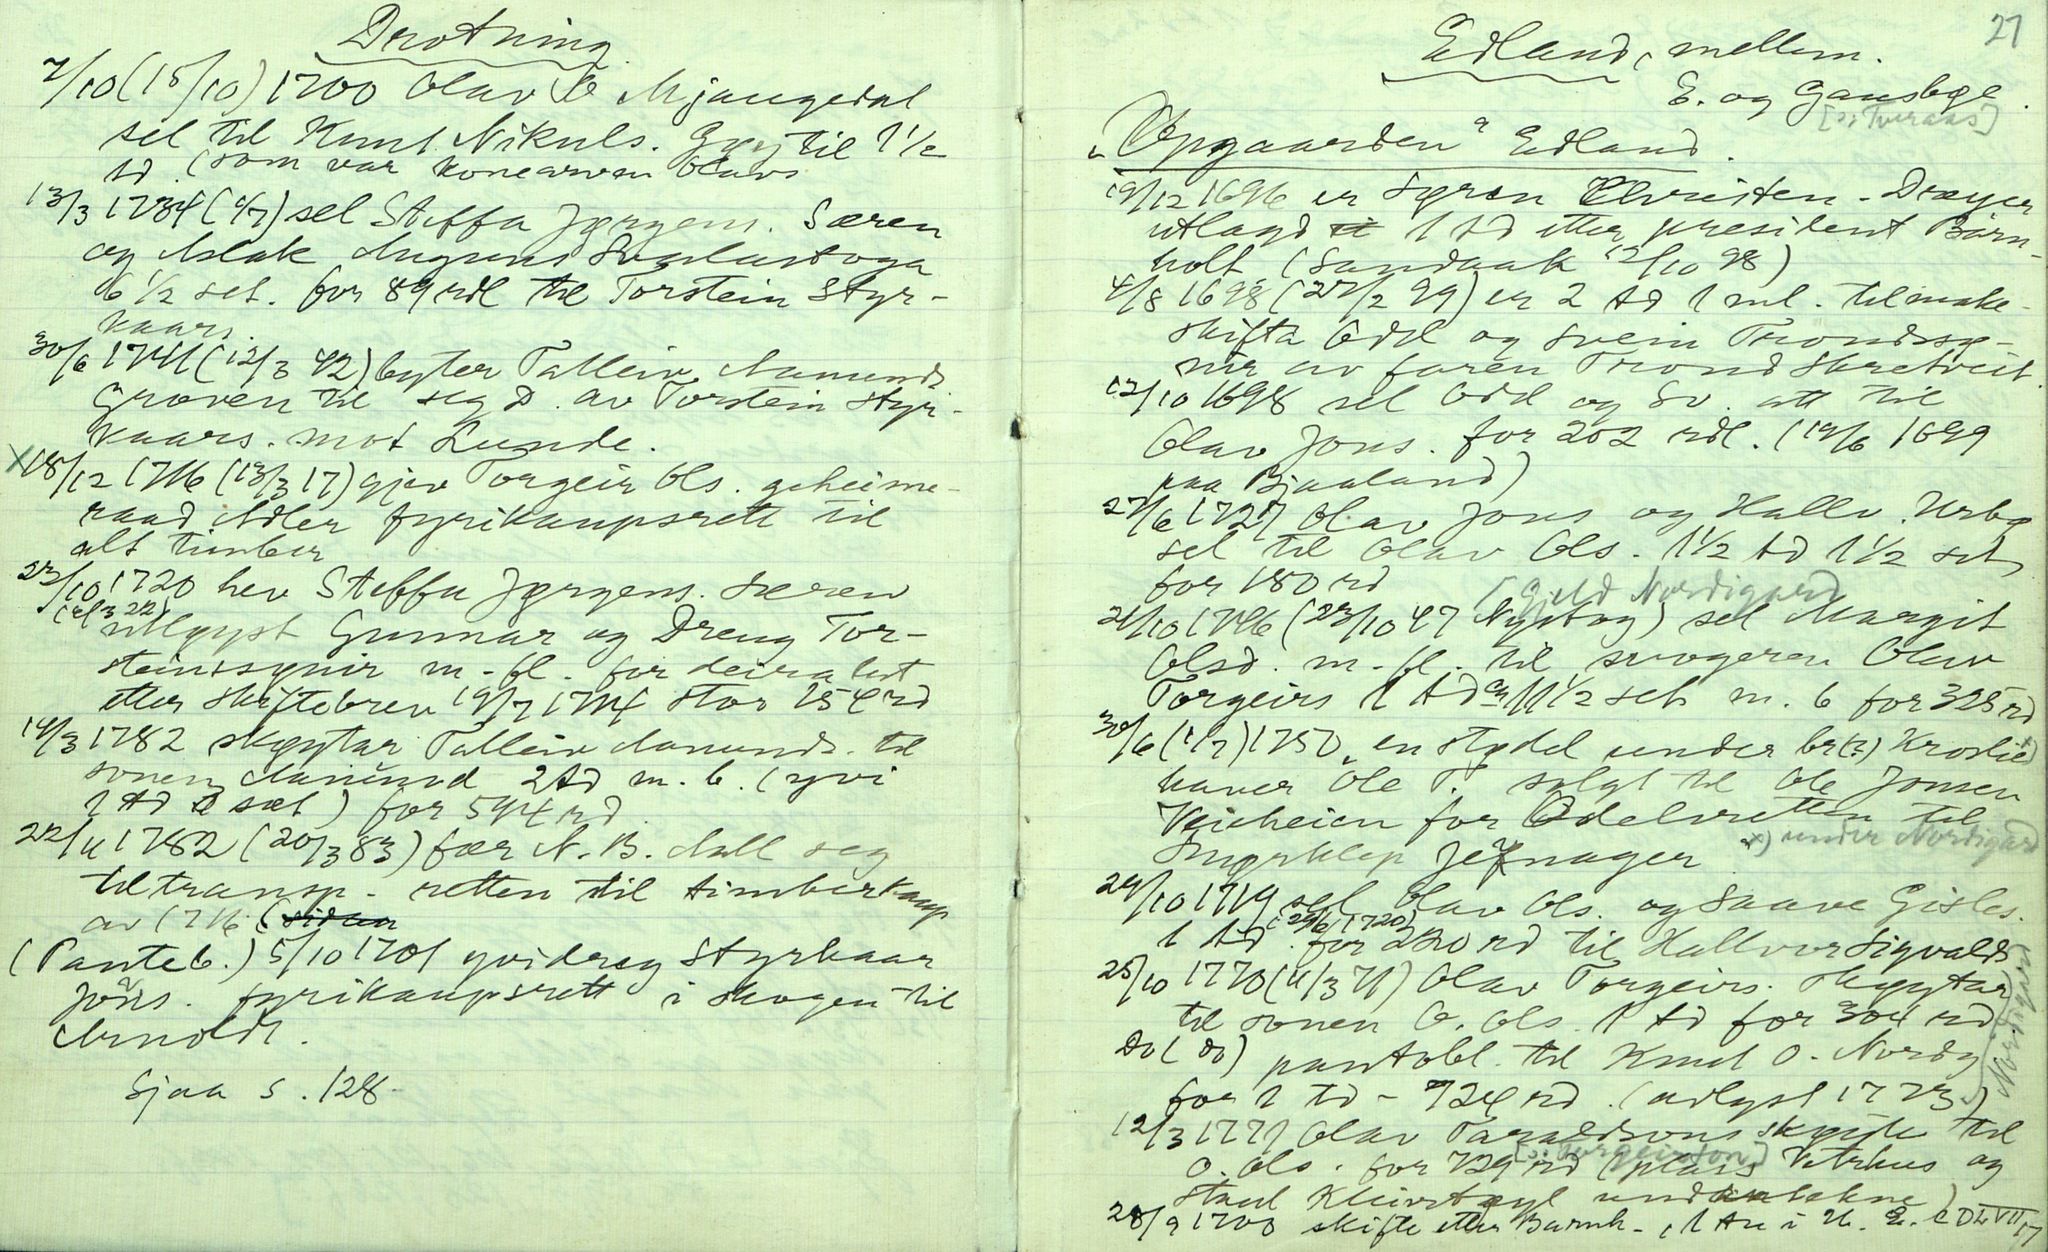 Drotning
7/10 (15/10) 1700 Olav O Mjaugedal
sel til Knut Nikuls. til 1 1/2
td. (som var konearven Olavs
13/3 1734 (1/7) sel Steffa Jørgens. Særen
og Aslak Mogens Svalastoga
6 1/2 set. for 89 rdl til Torstein Styr-
kaars.
30/6 1741 (12/3 42) byter Talleiv Aamunds
Groven til seg D. av Torstein Styr-
kaars. mot Lunde.
X 18/12 1716 (13/3 17) gjev Torgeir Ols. geheime-
raad Adler fyrikaupsrett til
alt timber
23/10 1720 hev Steffa Jørgens. Særen
utløyst Gunnar og Dreng Tor-
steinssynir m-fl. for deira lut
etter skiftebrev 19/7 1714 stor 154 rd
14/3 1782 skøytar Talleiv Aamunds. til
sonen Aamund 2 td m. b. (yvi
1 td set) for 594 rd.
22/11 1782 (20/3 83) fær N. B. Aall seg
til transp- retten til timberkaup
av 1716 (sidan
(Panteb.) 5/10 1701 yvidreg Styrkaar
Jøns. fyrikaupsrett i skogen til
Arnoldt.
Sjaa s. 128
27
Edland, mellem.
E. og Gausbge.
[ɔ: Tveraas]
"Opgaarden" Edland.
19/12 1696 er Søren Christen. Drøyer
utlagd 1 td etter president Børn-
holt (Sandaak 12/10 98)
4/8 1698 (27/2 99) er 2 td 1 ml. tilmake-
skifta Odd og Svein Trondssy-
nir av faren Trond Skretveit.
12/10 1698 sel Odd og Sv. att til
Olav Jons. for 202 rdl. (19/6 1699
paa Bjaaland)
27/6 1727 Olav Jons og Hallv. Urbø
sel til Olav Ols. 1 1/2 td 1 1/2 set
for 180 rd
[Gjeld Nordigard
21/10 1746 (23/10 47 Nystog) sel Margit
Olsd. m-fl. til svogeren Olav
Torgeirs 1 td 11 1/2 set m. b for 325 rd
30/6 (1/7) 1757 en stydel under br(?) Kroslie x)
haver Ole T. solgt til Ole Jonsen
Veieheien for Odelsretten til
Jefnager
x) under Nordigard
24/10 1719 sel Olav Ols. og Saave Gisles.
(29/6 1720)
1 td. for 220 rd til Hallvor Sigvalds
25/10 1770 (11/3 71) Olav Torgeirs. skøytar
til sonen O. Ols. 1 td for 304 rd
Nordigard
do (do) pantobl. til Knut O. Nordg
for 1 td - 724 rd. (avlyst 1773)
12/3 1771 Olav Taraldsons skøyte til
[ɔ: Torgeirson]
O. Ols. for 729 rd (plass Vetrhus og
Stæul Kleivstøyl undantekne)
28/9 1703 skifte etter Barnh., 1 td i U. E.